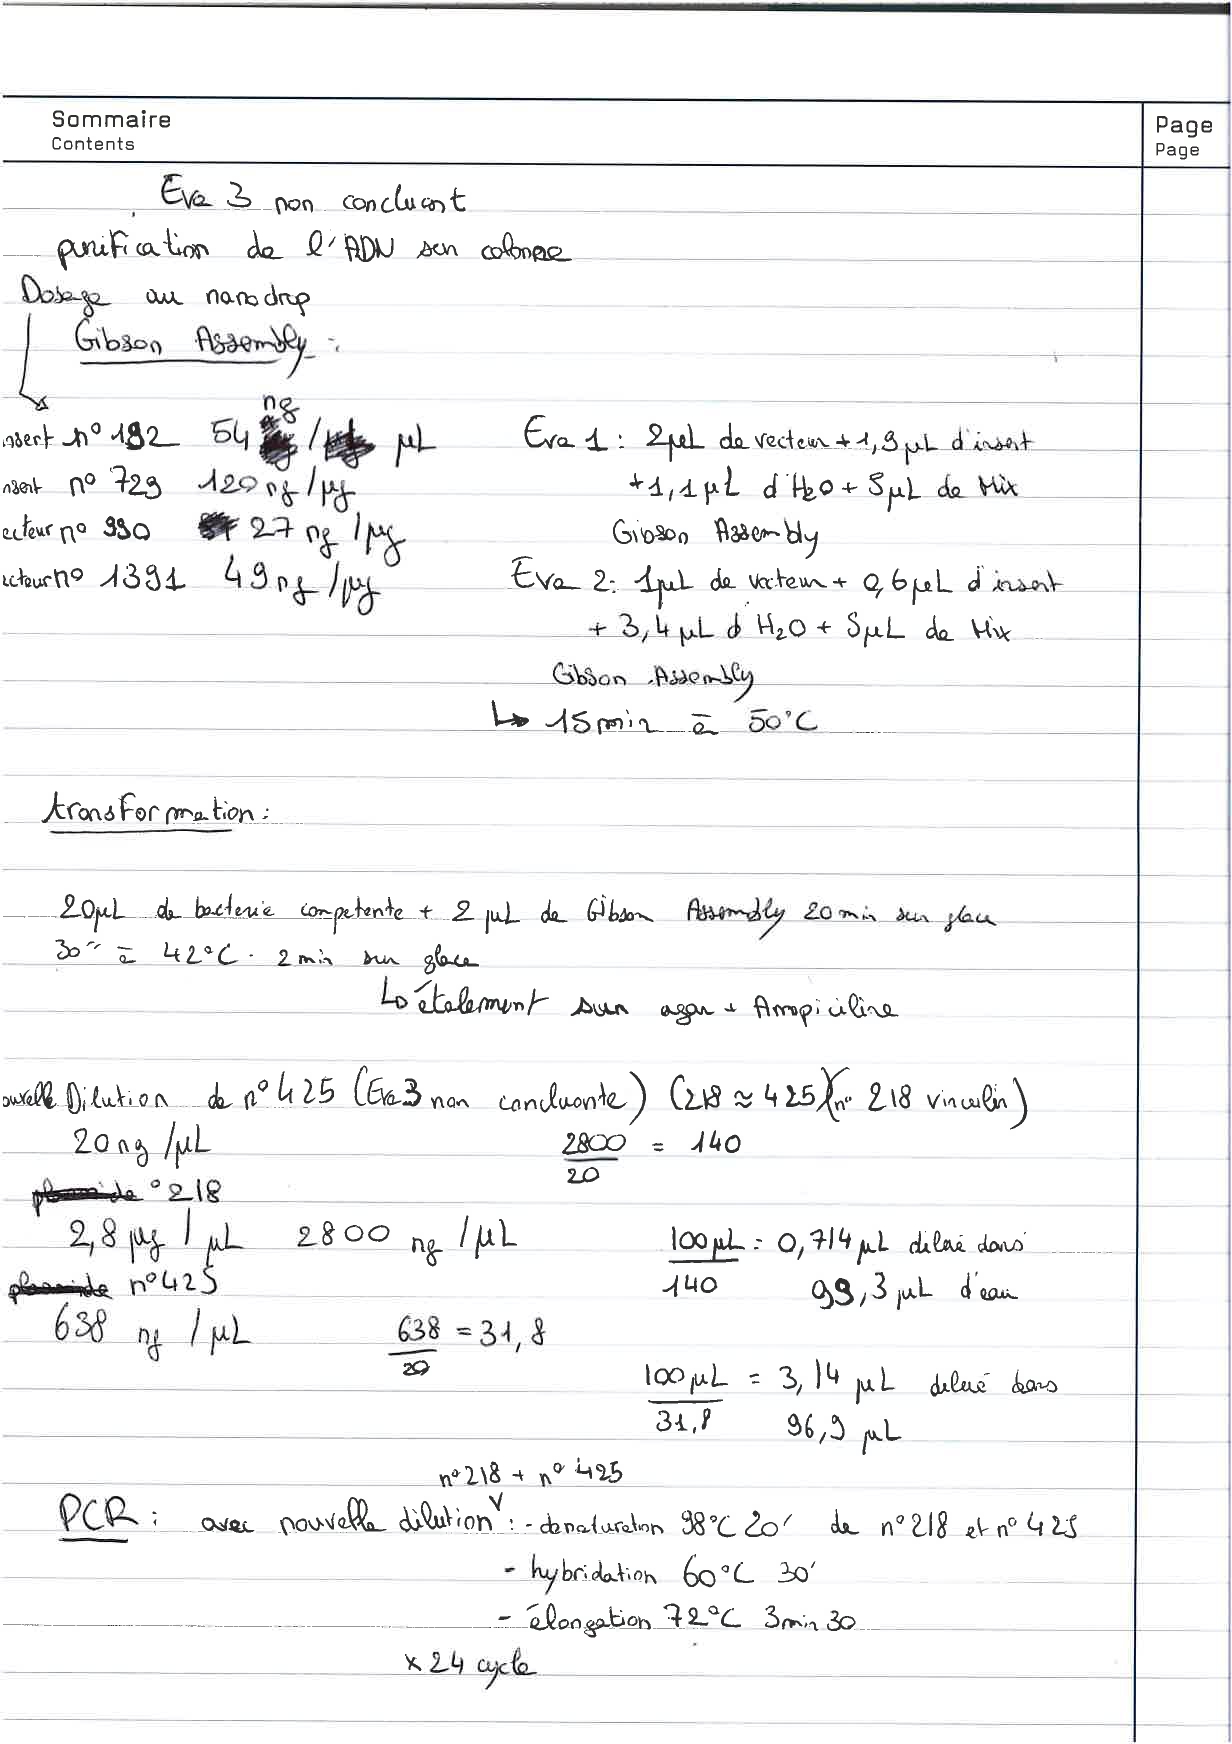 Sommaire
Contents
Page
Page
Eva 3 non concluant
purification de l'ADN sur colonne
Dosage au nanodrop
Gibson Assembly :
nsert n° 192 54 ng / µL
nsert n° 729 120 ng/µg
ecteur n° 990 27 ng/µg
cteur n° 1391 49 ng/µg
Eva 1 : 2µL de vecteur + 1,9 µL d'insert
+ 1,1 µL d'H2O + 5µL de Mix
Gibson Assembly
Eva 2: 1µL de vecteur + 0,6 µL d'insert
+ 3,4 µL d H2O + 5µL de Mix
Gibson Assembly
↳ 15min à 50°C
transformation :
20µL de bacterie competente + 2 µL de Gibson Assembly 20 min sur glace
30" à 42°C. 2 min sur glace
↳ étalement sur agar + Ampiciline
ouvelle Dilution de n° 425 (Eva3 non concluante) (218 ≈ 425)(n° 218 vinculin)
20 ng /µL 2800/20 = 140
° 218
2,8 µg / µL 2800 ng /µL 100µL/140 = 0,714 µL dilué dans
99,3 µL d'eau
n° 425
638 ng / µL 638/20 = 31,8
100µL/31,8 = 3,14 µL dilué dans
96,9 µL
n° 218 + n° 425
PCR : avec nouvelle dilution : - denaturation 98°C 20' de n° 218 et n° 425
- hybridation 60°C 30'
- élongation 72°C 3min30
x 24 cycle